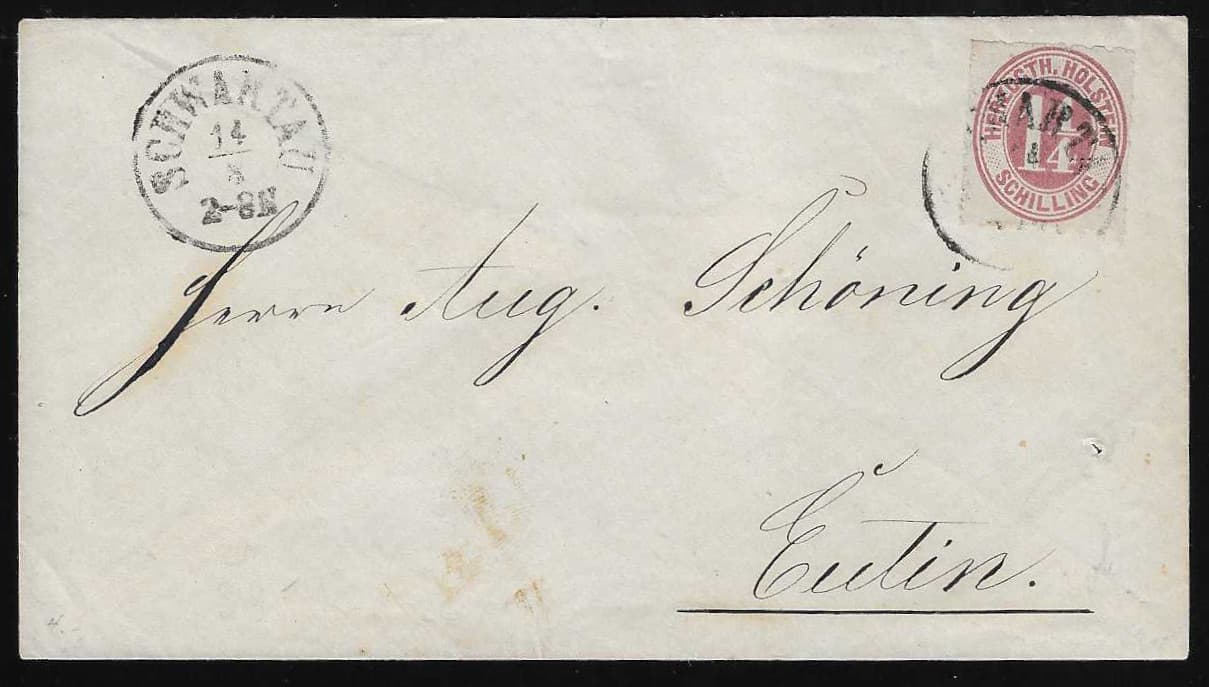 SCHWARTAU
14
8
2-8N
HERZOGTH. HOLSTEIN
1 1/4
SCHILLING
Herrn Aug. Schöning
Eutin.